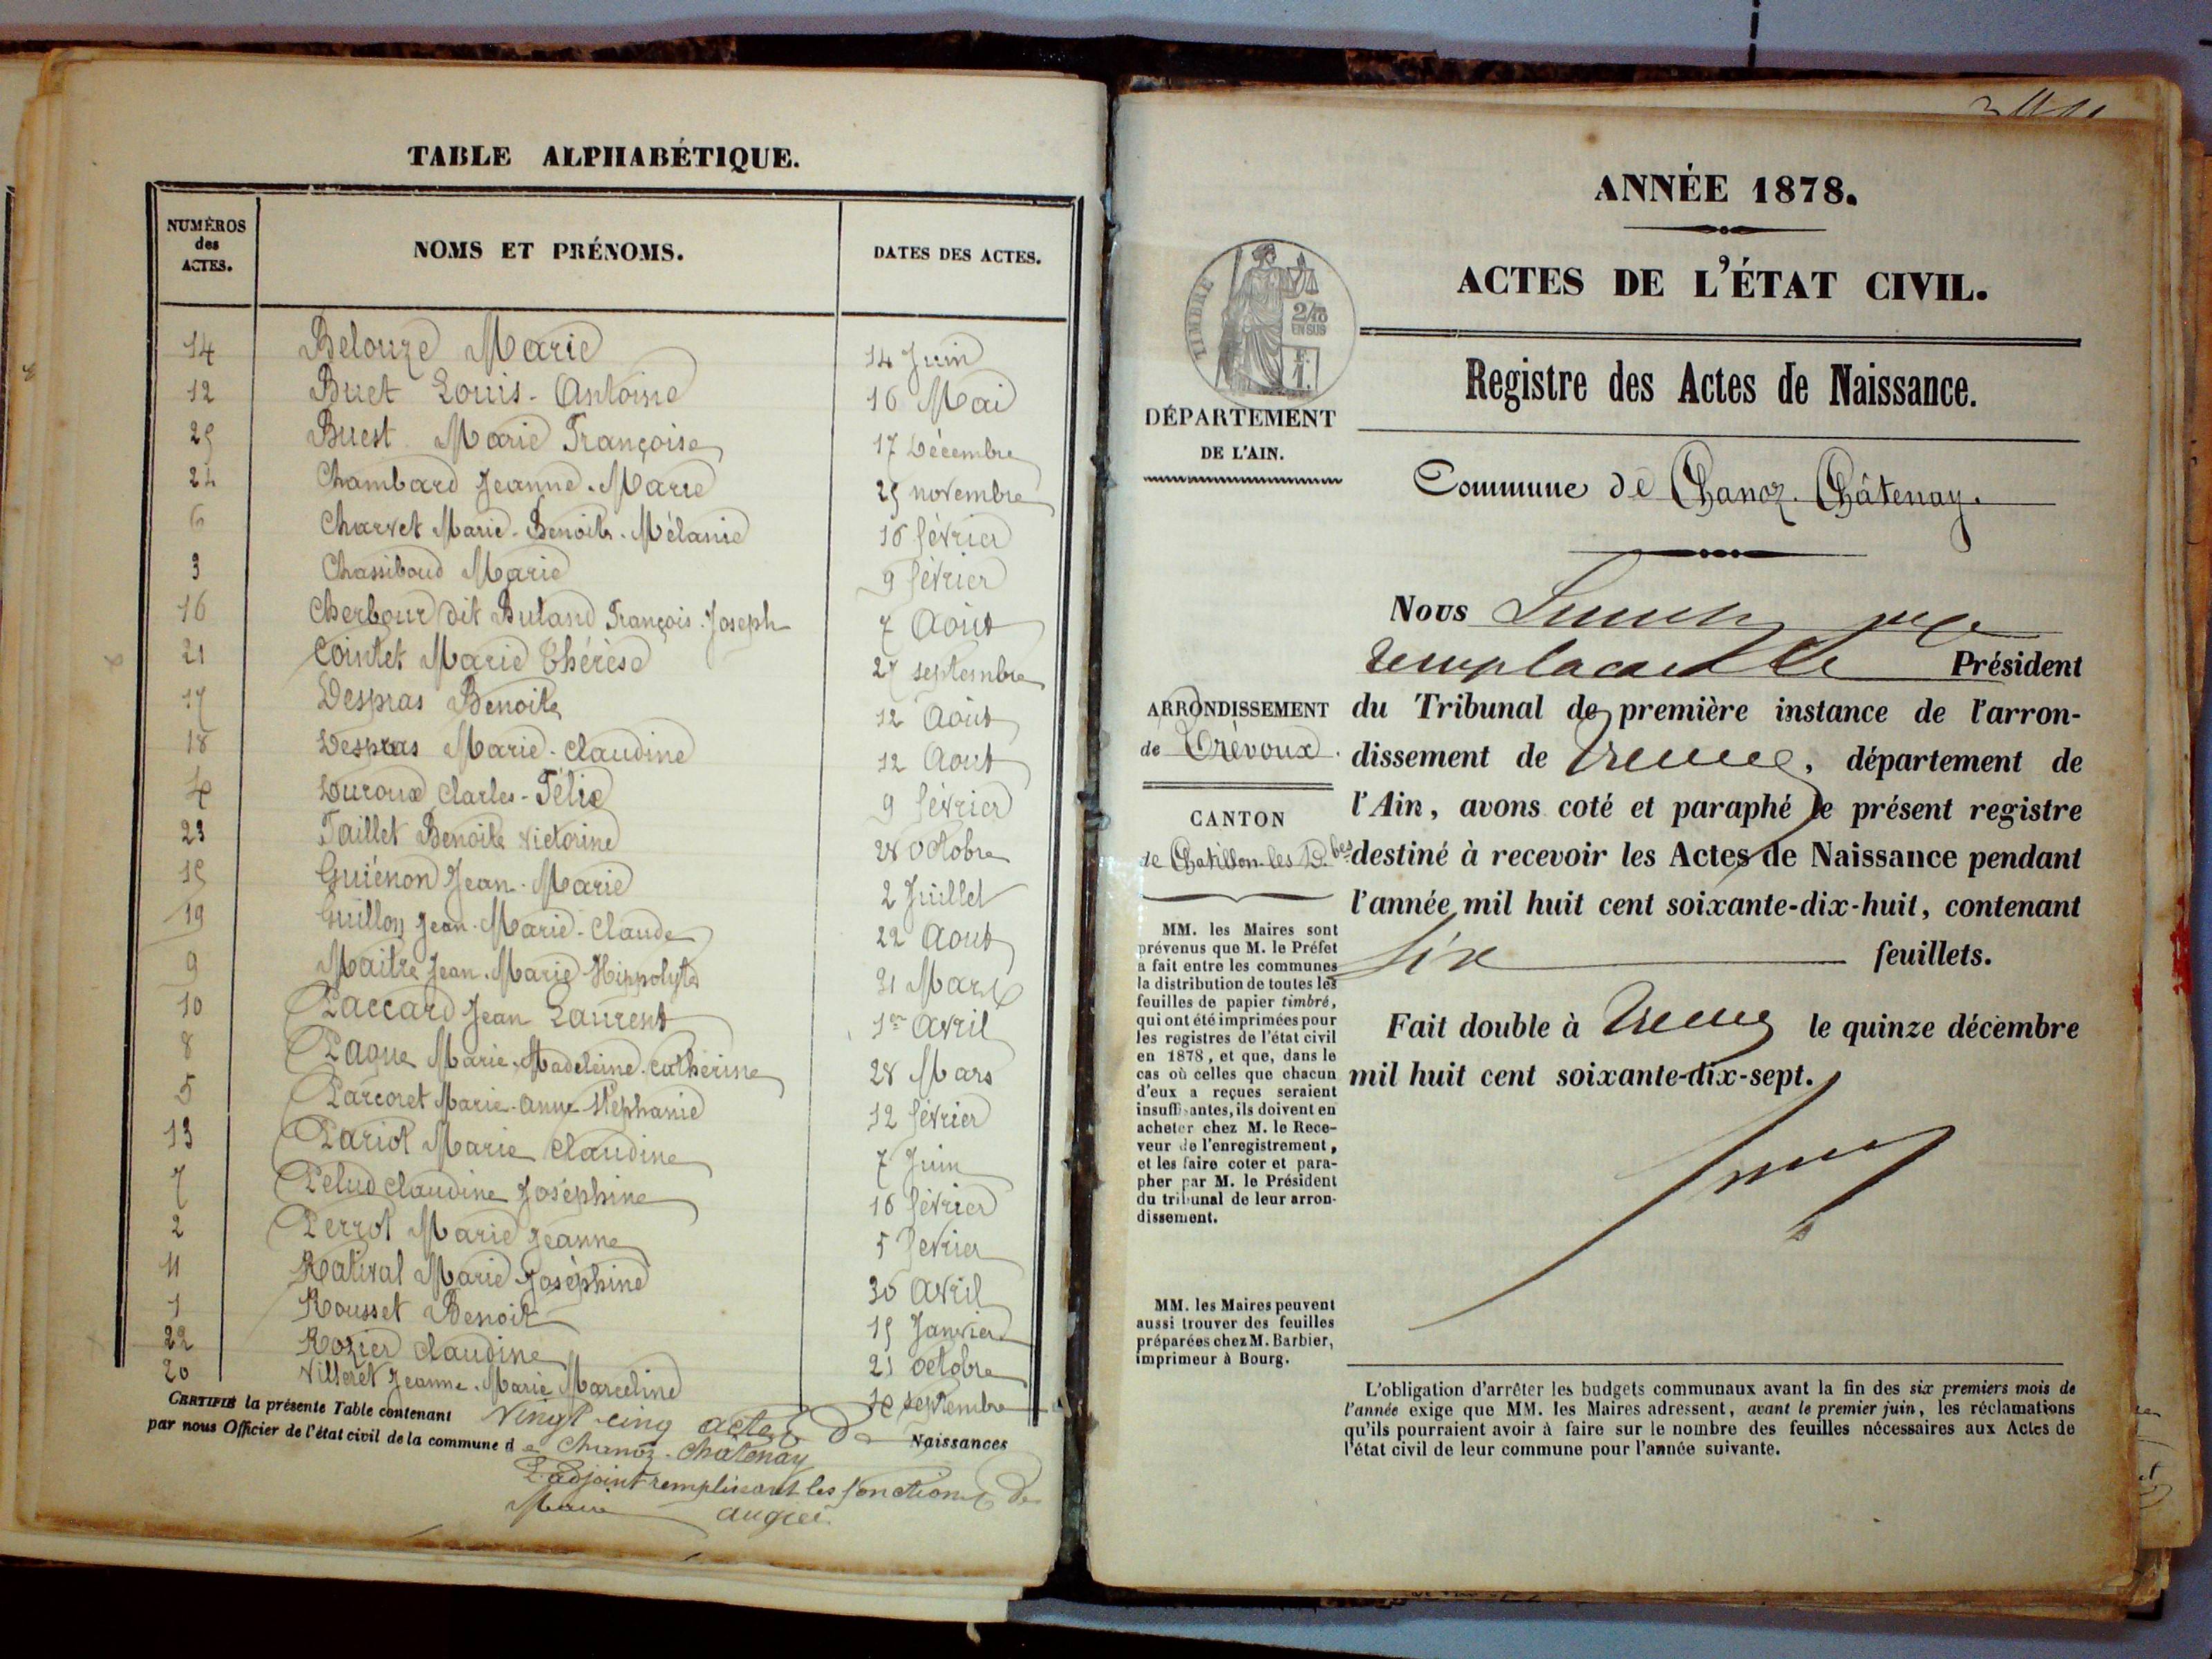 TABLE ALPHABÉTIQUE.
NUMÉROS
des
ACTES.
NOMS ET PRÉNOMS.
DATES DES ACTES.
14 Belouze Marie 14 Juin
12 Buet Louis-Antoine 16 Mai
25 Buest Marie Françoise 17 Décembre
24 Chambard Jeanne-Marie 25 novembre
6 Charvet Marie-Benoite-Mélanie 16 février
3 Chassiboud Marie 9 février
16 Cherbour dit Buland François-Joseph 7 Août
21 Cointet Marie Thérèse 27 septembre
17 Despras Benoite 12 Août
18 Despras Marie-Claudine 12 Aout
4 Duroux Charles-Félix 9 février
23 Faillet Benoite Victorine 28 Octobre
15 Guiénon Jean-Marie 2 Juillet
19 Guillon Jean-Marie-Claude 22 Aout
9 Maitre Jean-Marie Hippolyte 31 Mars
10 Paccard Jean Laurent 1er Avril
8 Pagne Marie-Madeleine-Catherine 28 Mars
5 Parcoret Marie-Anne Stéphanie 12 février
13 Pariot Marie Claudine 7 Juin
7 Pelud Claudine Joséphine 16 février
2 Perrot Marie Jeanne 5 fevrier
11 Rativat Marie Joséphine 30 Avril
1 Rousset Benoit 15 Janvier
22 Rozier Claudine 21 Octobre
20 Villeret Jeanne-Marie Marceline septembre
CERTIFIÉ la présente Table contenant Vingt-cinq actes de Naissances
par nous Officier de l'état civil de la commune de Chanoz-Châtenay
L'adjoint remplissant les fonctions de
Maire
ANNÉE 1878.
ACTES DE L'ÉTAT CIVIL.
TIMBRE
2/10
EN SUS
Registre des Actes de Naissance.
DÉPARTEMENT
DE L'AIN.
Commune de Chanoz-Châtenay.
Nous
remplacant le Président
ARRONDISSEMENT
de Trévoux.
du Tribunal de première instance de l'arron-
dissement de Trevoux, département de
l'Ain, avons coté et paraphé le présent registre
destiné à recevoir les Actes de Naissance pendant
l'année mil huit cent soixante-dix-huit, contenant
six feuillets.
Fait double à Trevoux le quinze décembre
mil huit cent soixante-dix-sept.
CANTON
de Chatillon-les-D.bes
MM. les Maires sont
prévenus que M. le Préfet
a fait entre les communes
la distribution de toutes les
feuilles de papier timbré,
qui ont été imprimées pour
les registres de l'état civil
en 1878, et que, dans le
cas où celles que chacun
d'eux a reçues seraient
insuffisantes, ils doivent en
acheter chez M. le Rece-
veur de l'enregistrement,
et les faire coter et para-
pher par M. le Président
du tribunal de leur arron-
dissement.
MM. les Maires peuvent
aussi trouver des feuilles
préparées chez M. Barbier,
imprimeur à Bourg.
L'obligation d'arrêter les budgets communaux avant la fin des six premiers mois de
l'année exige que MM. les Maires adressent, avant le premier juin, les réclamations
qu'ils pourraient avoir à faire sur le nombre des feuilles nécessaires aux Actes de
l'état civil de leur commune pour l'année suivante.